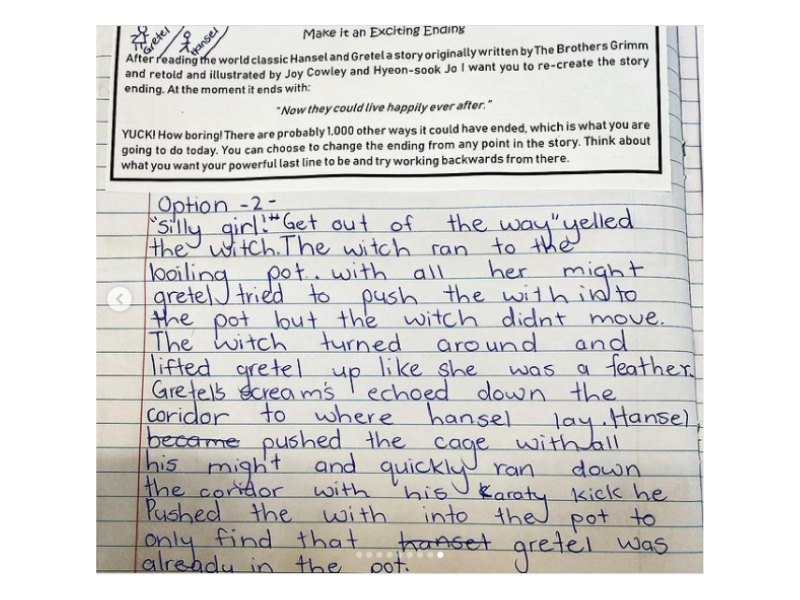 Gretel
Hansel
Make it an Exciting Ending
After reading the world classic Hansel and Gretel a story originally written by The Brothers Grimm
and retold and illustrated by Joy Cowley and Hyeon-sook Jo I want you to re-create the story
ending. At the moment it ends with:
"Now they could live happily ever after."
YUCK! How boring! There are probably 1,000 other ways it could have ended, which is what you are
going to do today. You can choose to change the ending from any point in the story. Think about
what you want your powerful last line to be and try working backwards from there.
Option -2-
"Silly girl!" "Get out of the way" yelled
the witch. The witch ran to the
boiling pot. with all her might
gretel tried to push the with into
the pot but the witch didnt move.
The witch turned around and
lifted gretel up like she was a feather.
Gretel's scream's echoed down the
coridor to where hansel lay. Hansel
became pushed the cage with all
his might and quickly ran down
the coridor with his Karaty kick he
Pushed the with into the pot to
only find that hansel gretel was
already in the pot.